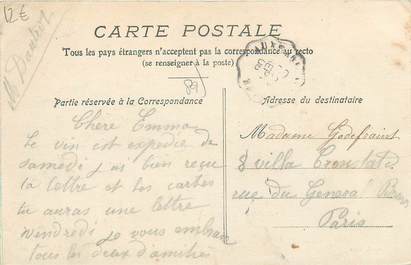 12€
CARTE POSTALE
Tous les pays étrangers n'acceptent pas la correspondance au recto
(se renseigner à la poste)
89
Partie réservée à la Correspondance
Adresse du destinataire
Chère Emma
le vin est expedie de
samedi jai bien reçu
ta lettre et les cartes
tu auras une lettre
vendredi je vous embrasse
tous les deux d'amitiés
Madame Godefraint
8 villa Cronstadt
rue du General
Paris